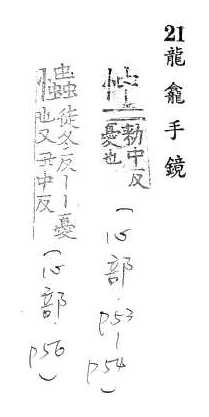 21龍龕手鏡
忡二勑中反憂也(心部 p53-p54)
爞𢥞徒冬反｜｜憂也又丑中反(心部 p56)